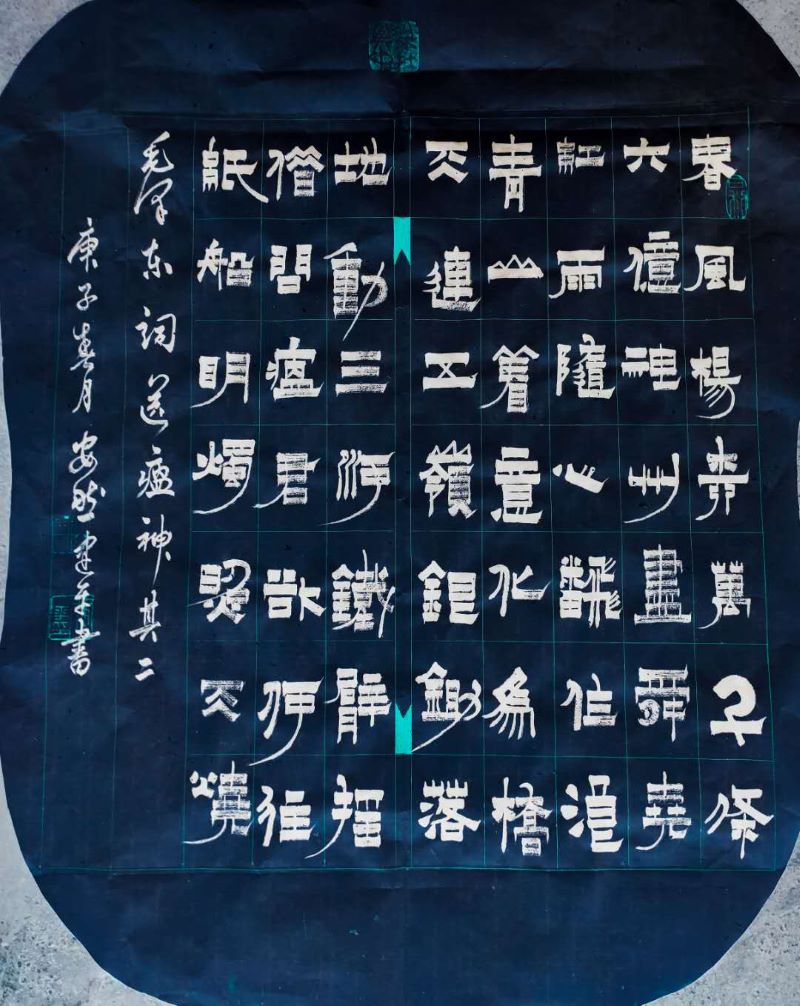 春風楊柳萬千條
六億神州盡舜堯
紅雨隨心飜作浪
青山著意化為橋
天連五嶺銀鋤落
地動三河鐵臂搖
借問瘟君欲何往
紙船明燭照天燒
毛泽东詞送瘟神其二
庚子春月安然建平書